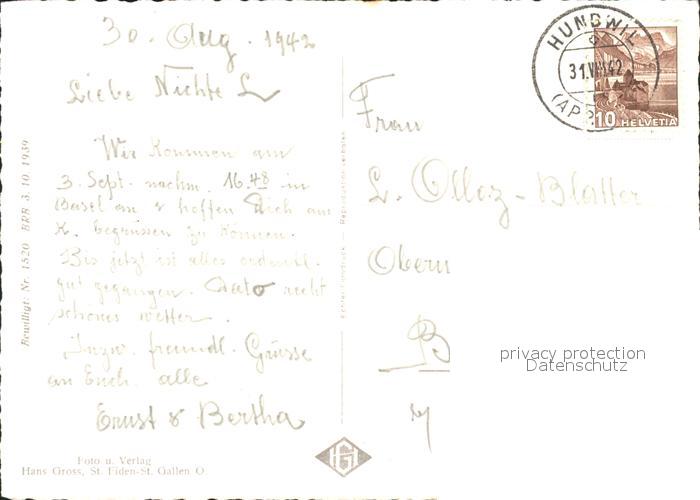 30. Aug. 1942
Liebe Nichte L
Wir kommen am
3. Sept. nachm. 16.48 in
Basel an & hoffen Dich am
begrüssen zu können.
Bis jetzt ist alles ordentl.
gut gegangen. Dato recht
schönes Wetter.
freundl. Grüsse
an Euch alle
Ernst & Bertha
Foto u. Verlag
Hans Gross, St. Fiden-St. Gallen O.
Bewilligt. Nr. 1520 BRB 3. 10. 1939
Reproduktion verboten
HUNDWIL
31.VIII.42
10 HELVETIA
Frau
L. Olloz-Blatter
Obern
B
privacy protection
Datenschutz